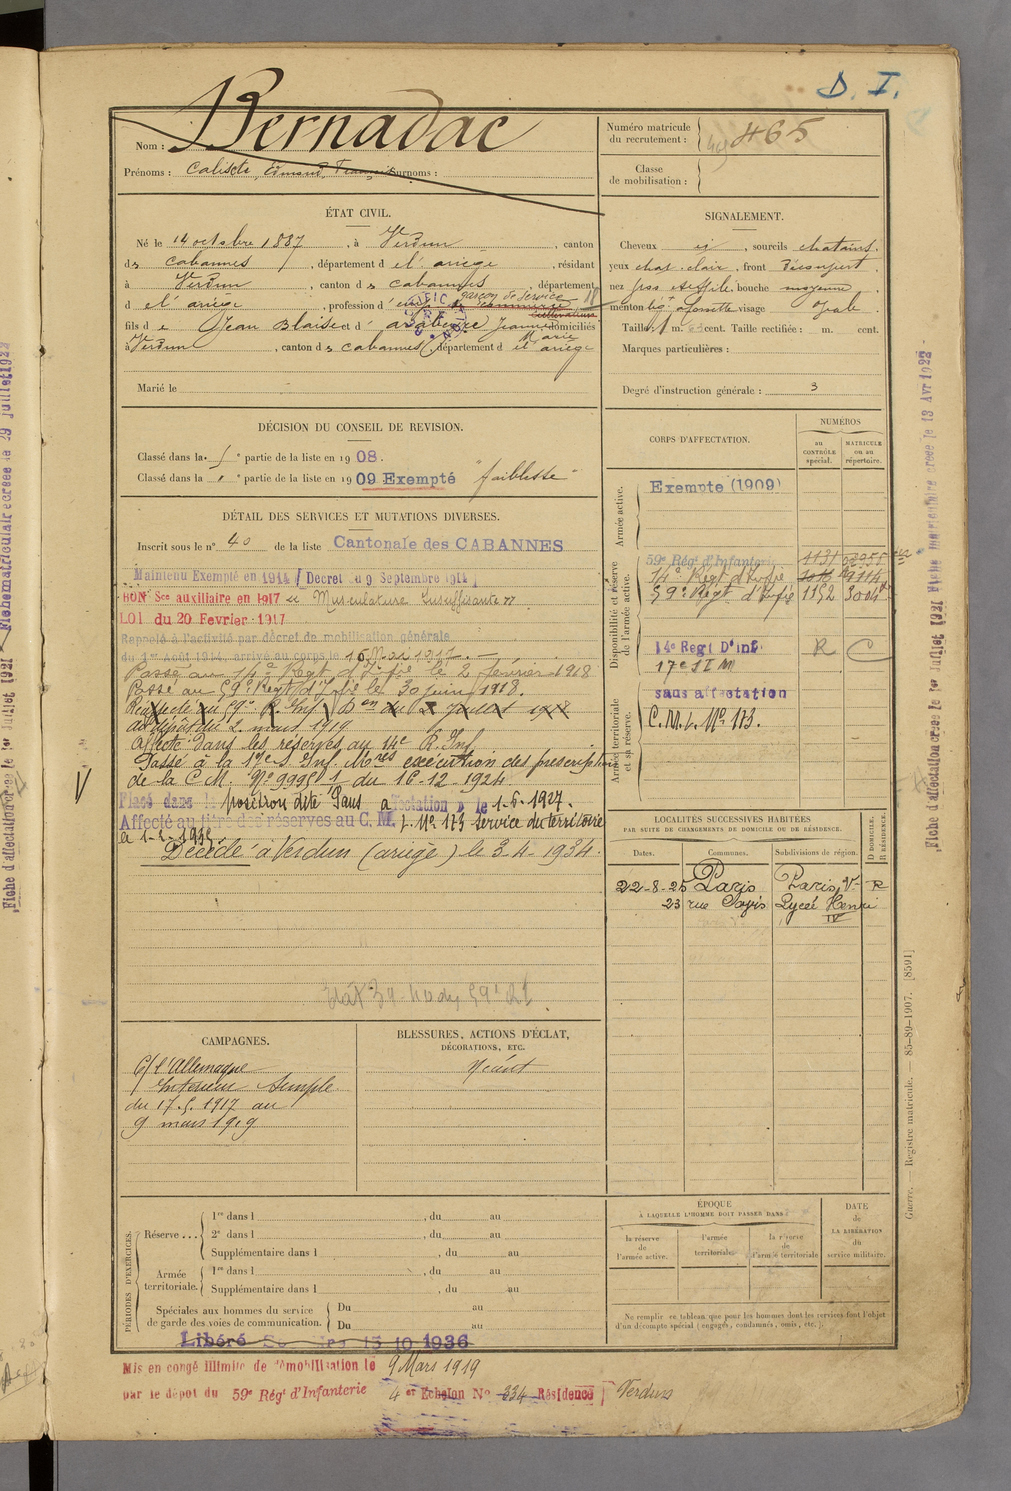 D. I.
Nom : Bernadac
Prénoms : Calixte, Edmond, François Surnoms :
Numéro matricule du recrutement : 465
Classe de mobilisation :
ÉTAT CIVIL.
Né le 14 octobre 1887, à Verdun, canton
des Cabannes, département de l'ariège, résidant
à Verdun, canton des cabannes, département
de l'ariège, profession d'
garçon de service
cultivateur
fils de Jean Blaise et d' Jeanne domiciliés
Marie
à Verdun, canton des cabannes, département de l'ariège
Marié le
SIGNALEMENT.
Cheveux id, sourcils chatains
yeux chat. clair, front Découvert
nez gros, bouche moyenne
menton visage ovale
Taille : 1 m. cent. Taille rectifiée : m. cent.
Marques particulières :
Degré d'instruction générale : 3
DÉCISION DU CONSEIL DE REVISION.
Classé dans la 1e partie de la liste en 1908.
Classé dans la " partie de la liste en 1909 Exempté "faiblesse"
DÉTAIL DES SERVICES ET MUTATIONS DIVERSES.
Inscrit sous le n° 40 de la liste Cantonale des CABANNES
Maintenu Exempté en 1914 (Décret du 9 Septembre 1914)
BON Sce auxiliaire en 1917 Musculature Insuffisante
LOI du 20 Février 1917
Rappelé à l'activité par décret de mobilisation générale
du 1er Août 1914, arrivé au corps le 16 Mai 1917. —
Passé au 14e Régt d'Inf ie le 2 février 1918
Passé au 59e Régt d'Inf ie le 30 juin 1918.
Réaffecté au 59e R. Inf. du 2 Juillet 1918
au dépôt du 2. mars 1919
Affecté dans les réserves au 14e R. Inf
Passé à la 17e S. Inf. Mres exécution des prescriptions
de la C M. No 9995 1/ du 16-12-1924
Placé dans la position dite Sans affectation le 1-6-1927.
Affecté au titre des réserves au C. M. I. No 173 Service du territoire
Décédé à Verdun (ariège) le 3-4-1934.
CORPS D'AFFECTATION.
NUMÉROS
au CONTRÔLE spécial.
MATRICULE ou au répertoire.
Armée active.
Exempté (1909)
Disponibilité et réserve de l'armée active.
59e Régt d'Infanterie 1131
14e Régt d'Infie 9114
59e Régt d'Infie 1152 3004
14e Regt D'Inf R C
17e S I M
Armée territoriale et sa réserve.
sans affectation
C. M. I. No 173.
LOCALITÉS SUCCESSIVES HABITÉES
PAR SUITE DE CHANGEMENTS DE DOMICILE OU DE RÉSIDENCE.
D DOMICILE. R RÉSIDENCE.
Dates. Communes. Subdivisions de région.
22-8-25 Paris Paris, V R
23 rue Clovis Lycée Henri
IV
CAMPAGNES.
C/ l'Allemagne
Intérieur Simple
du 17.5.1917 au
9 mars 1919
BLESSURES, ACTIONS D'ÉCLAT,
DÉCORATIONS, ETC.
Néant
PÉRIODES D'EXERCICES.
Réserve ... 1re dans l , du au
2e dans l , du au
Supplémentaire dans l , du au
Armée territoriale. 1re dans l , du au
Supplémentaire dans l , du au
Spéciales aux hommes du service de garde des voies de communication. Du au
Du au
ÉPOQUE
À LAQUELLE L'HOMME DOIT PASSER DANS
la réserve de l'armée active.
l'armée territoriale.
la réserve de l'armée territoriale
DATE de LA LIBÉRATION du service militaire.
Ne remplir ce tableau que pour les hommes dont les services font l'objet
d'un décompte spécial (engagés, condamnés, omis, etc.).
Libéré 15 10 1936
Mis en congé illimité de démobilisation le 9 Mars 1919
par le dépôt du 59e Régt d'Infanterie 4 er Echelon No 334 Résidence Verdun
Guerre. — Registre matricule. — 85-89-1907. [8591]
Fiche d'affectation créée le 1er Juillet 1921 Fiche matriculaire créée le 13 Avr 1922
Fiche d'affectation créée le 1er Juillet 1921 Fiche matriculaire créée le 29 juillet 1922